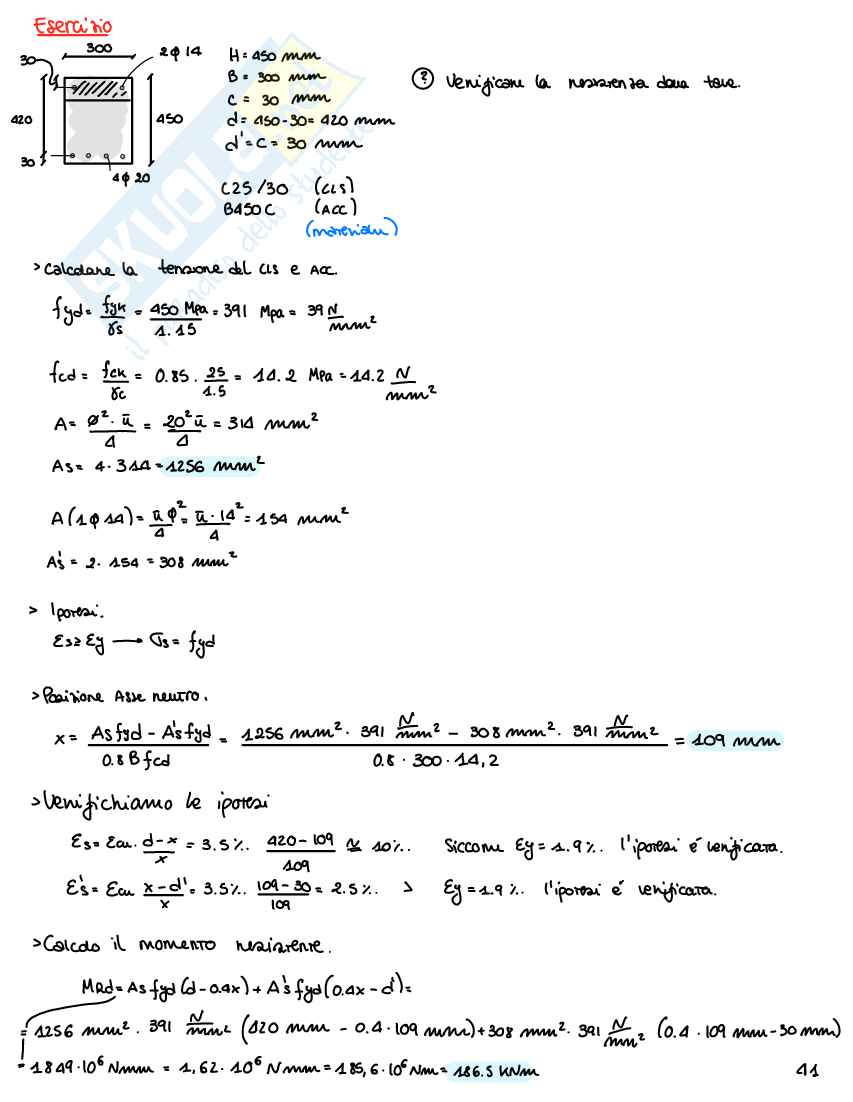 Esercizio
300
30
2ϕ14
420
450
30
4ϕ20
H = 450 mm
B = 300 mm
C = 30 mm
d = 450-30 = 420 mm
d' = C = 30 mm
? Verificare la resistenza della trave.
C25/30 (CLS)
B450C (ACC)
(materiali)
SKUOLA.net
il paradiso dello studente
> Calcolare la tensione del CLS e ACC.
fyd = fyk/γs = 450 Mpa/1.15 = 391 Mpa = 39 N/mm²
fcd = fck/γc = 0.85 · 25/1.5 = 14.2 Mpa = 14.2 N/mm²
A = ø² · π/4 = 20² π/4 = 314 mm²
As = 4 · 314 = 1256 mm²
A (1ϕ14) = π ϕ²/4 = π · 14²/4 = 154 mm²
A's = 2 · 154 = 308 mm²
> Ipotesi.
εs ≥ εy → σs = fyd
> Posizione Asse neutro.
x = As fyd - A's fyd / 0.8 B fcd = 1256 mm² · 391 N/mm² - 308 mm² · 391 N/mm² / 0.8 · 300 · 14,2 = 109 mm
> Verifichiamo le ipotesi
εs = εcu · d-x/x = 3.5‰ · 420-109/109 ≅ 10‰ Siccome εy = 1.9‰ l'ipotesi é verificata.
ε's = εcu x-d'/x = 3.5‰ · 109-30/109 = 2.5‰ > εy = 1.9‰ l'ipotesi é verificata.
> Calcolo il momento resistente.
MRd = As fyd (d-0.4x) + A's fyd (0.4x - d') =
= 1256 mm² · 391 N/mm² (420 mm - 0.4 · 109 mm) + 308 mm² · 391 N/mm² (0.4 · 109 mm - 30 mm)
= 1849·10⁶ Nmm = 1,62 · 10⁶ Nmm = 185,6 · 10⁶ Nm = 186.5 KNm
41